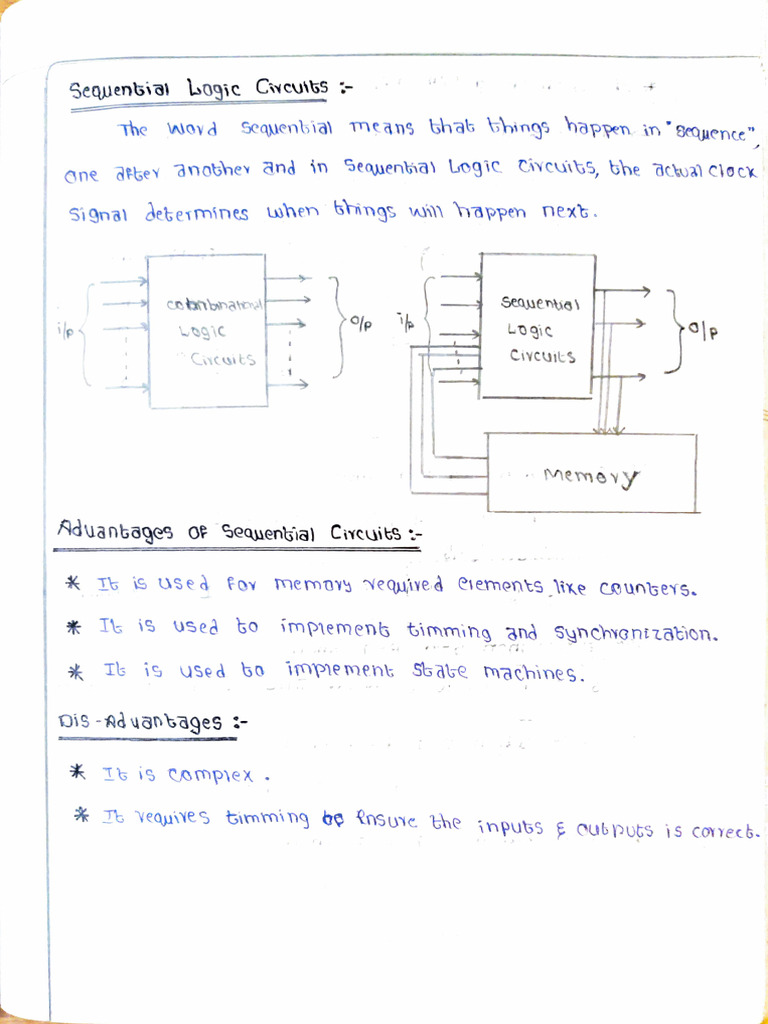 Sequential Logic Circuits :-
The word sequential means that things happen in "sequence",
one after another and in sequential Logic circuits, the actual clock
signal determines when things will happen next.
i/p
Combinational
Logic
Circuits
O/p
i/p
Sequential
Logic
Circuits
O/p
Memory
Advantages of Sequential Circuits :-
* It is used for memory required elements like counters.
* It is used to implement timming and synchronization.
* It is used to implement state machines.
Dis-Advantages :-
* It is complex.
* It requires timming to ensure the inputs & outputs is correct.